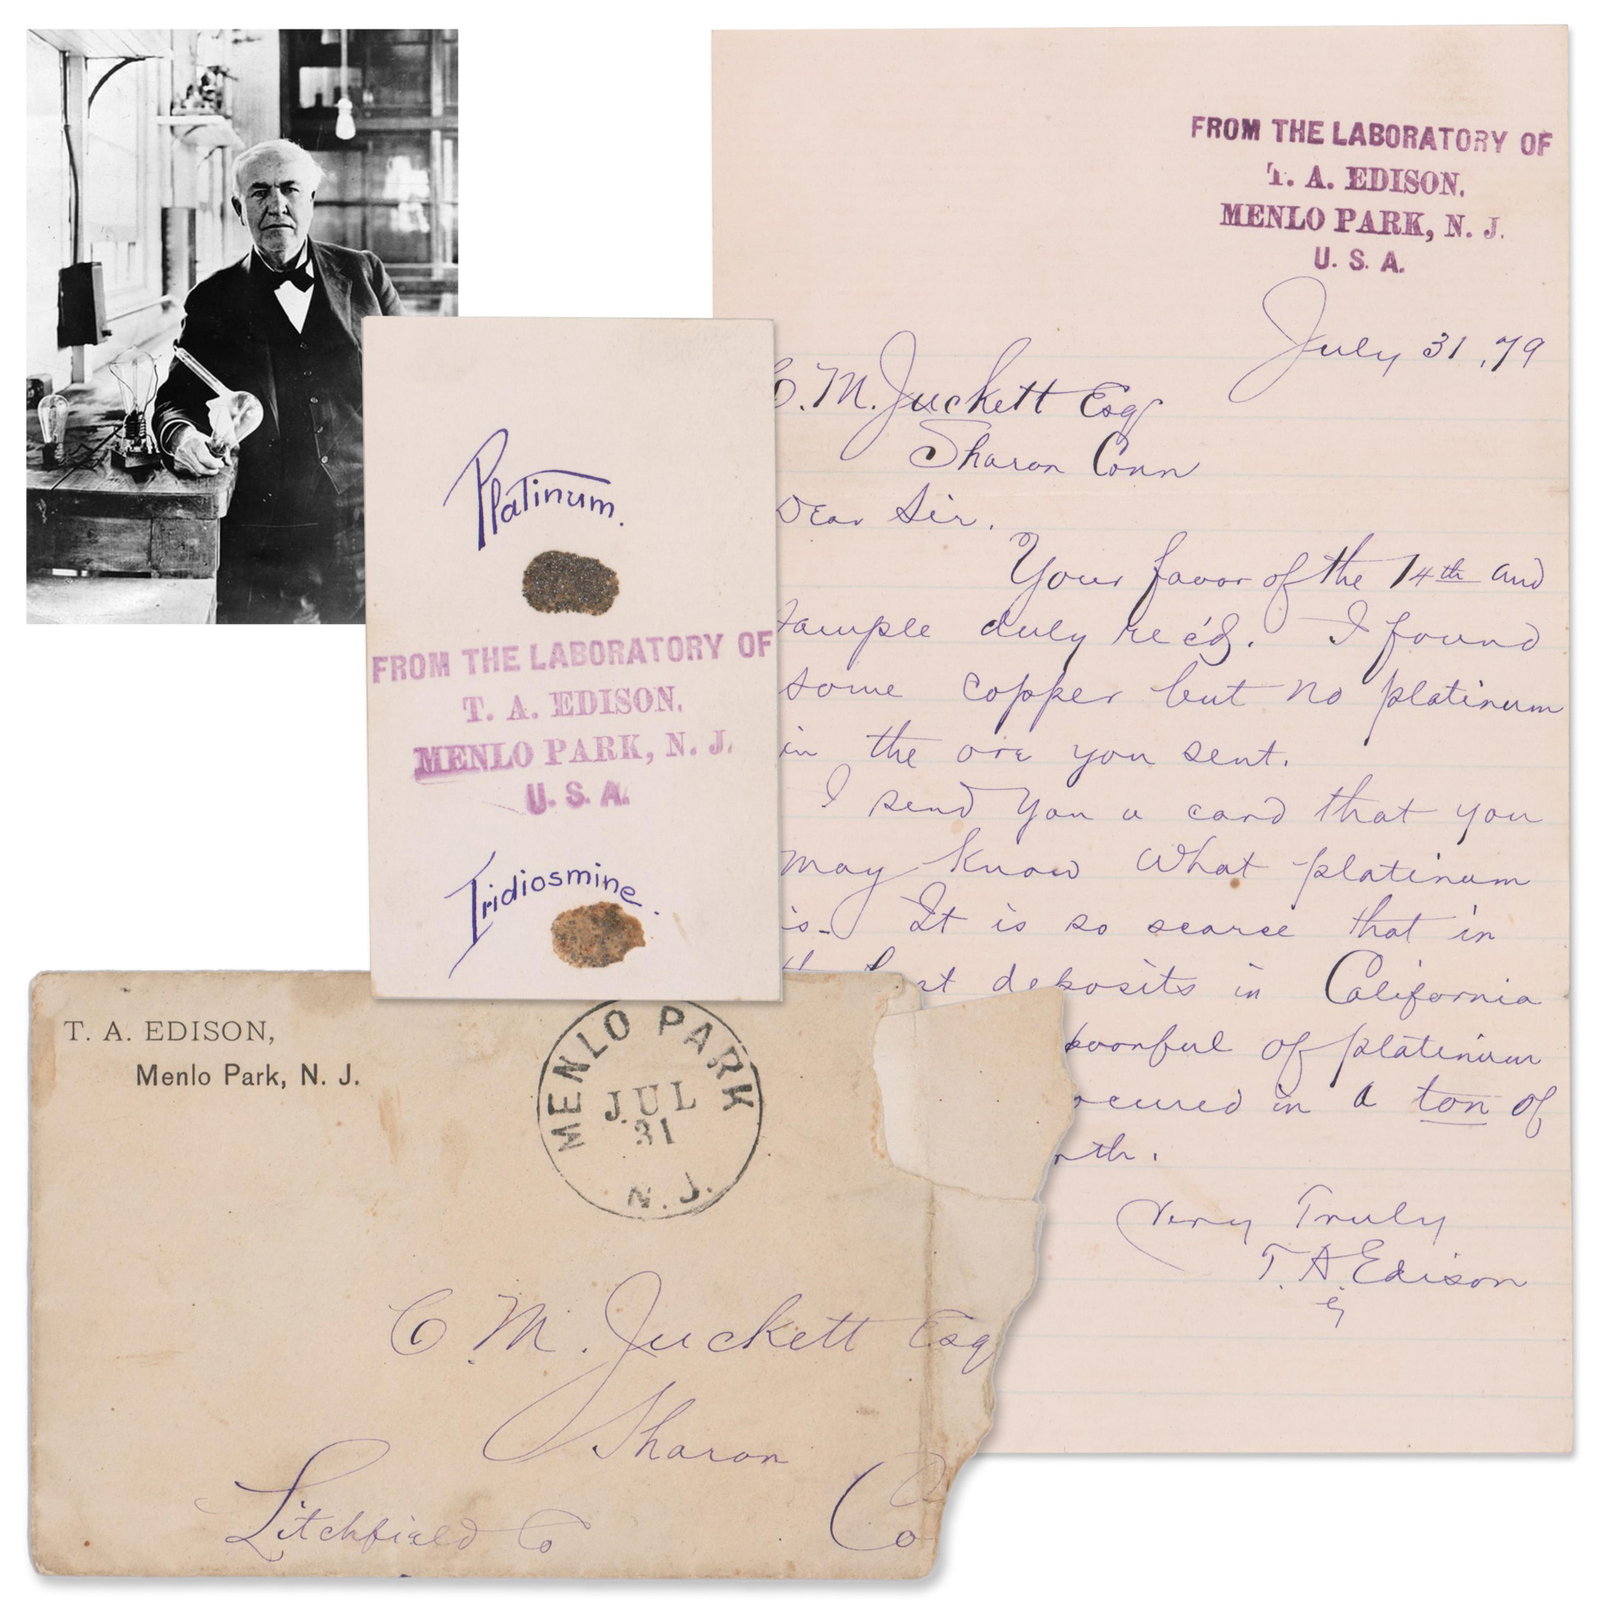 FROM THE LABORATORY OF
T. A. EDISON,
MENLO PARK, N. J.
U. S. A.
July 31, 79
C. M. Juckett Esq
Sharon Conn
Dear Sir.
Your favor of the 14th and
sample duly rec'd. I found
some copper but no platinum
in the ore you sent.
I send you a card that you
may know what platinum
is. It is so scarce that in
deposits in California
of platinum
in a ton of
Very Truly
T. A. Edison
Platinum.
FROM THE LABORATORY OF
T. A. EDISON,
MENLO PARK, N. J.
U. S. A.
Iridiosmine.
T. A. EDISON,
Menlo Park, N. J.
MENLO PARK
JUL
31
N. J.
C. M. Juckett Esq
Sharon
Litchfield Co
Co